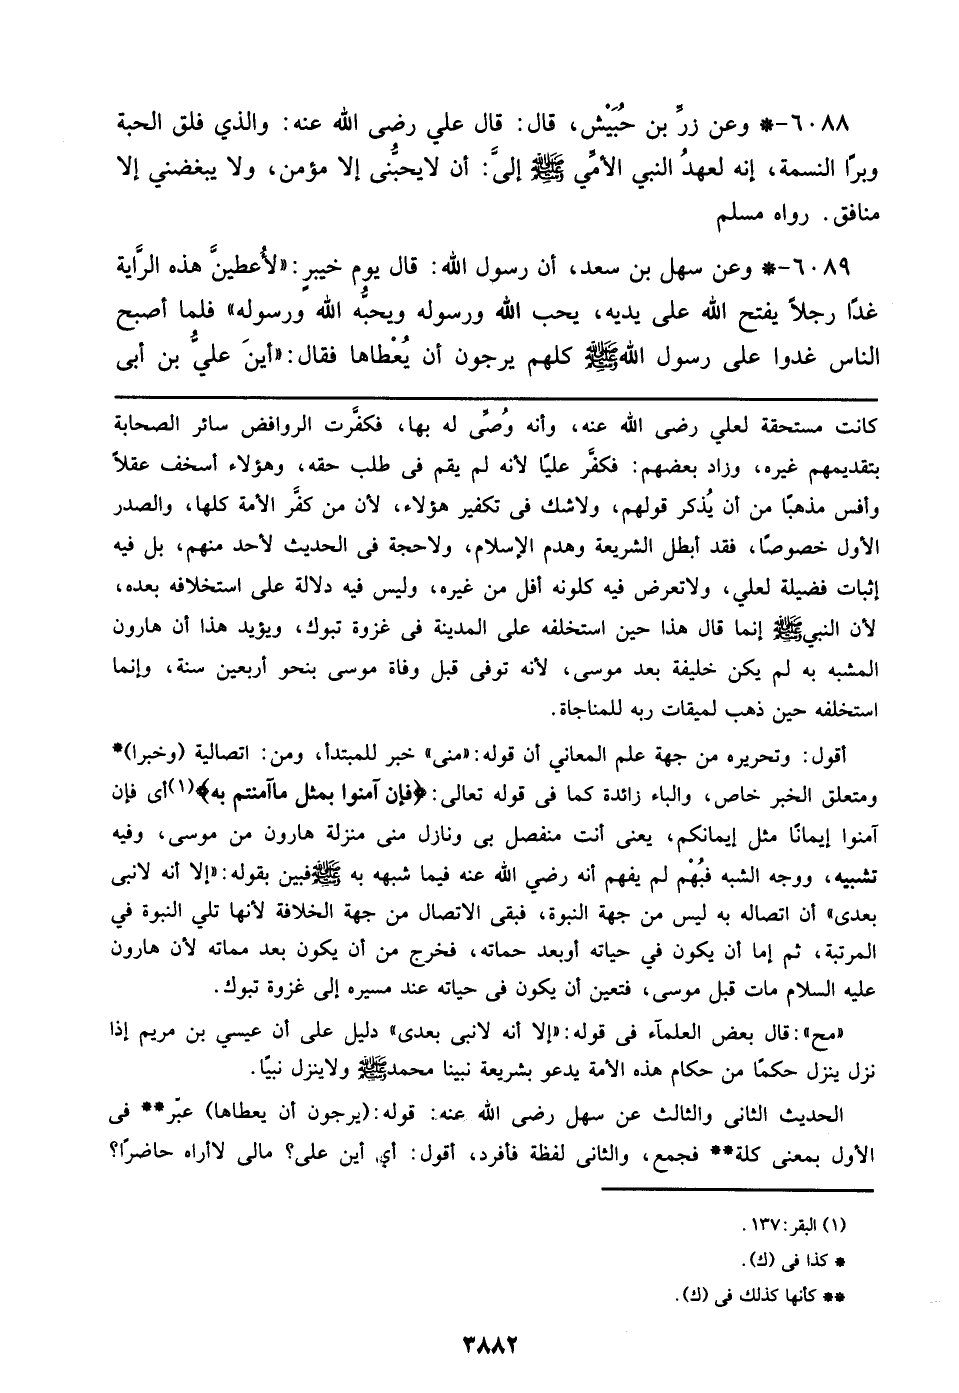 ٦٠٨٨-* وعن زرِّ بن حُبَيْش، قال: قال علي رضى الله عنه: والذي فلق الحبة
وبرأ النسمة، إنه لعهدُ النبي الأمِّي ﷺ إلىَّ: أن لايحبُّنى إلا مؤمن، ولا يبغضني إلا
منافق. رواه مسلم
٦٠٨٩-* وعن سهل بن سعد، أن رسول الله: قال يوم خيبرٍ: «لأُعطينَّ هذه الرَّاية
غدًا رجلاً يفتح الله على يديه، يحب الله ورسوله ويحبُّه الله ورسوله» فلما أصبح
الناس غدوا على رسول الله ﷺ كلهم يرجون أن يُعْطاها فقال: «أينَ عليُّ بن أبى
كانت مستحقة لعلي رضى الله عنه، وأنه وُصِّى له بها، فكفَّرت الروافض سائر الصحابة
بتقديمهم غيره، وزاد بعضهم: فكفَّر عليًا لأنه لم يقم فى طلب حقه، وهؤلاء أسخف عقلاً
وأفس مذهبًا من أن يُذكر قولهم، ولاشك فى تكفير هؤلاء، لأن من كفَّر الأمة كلها، والصدر
الأول خصوصًا، فقد أبطل الشريعة وهدم الإسلام، ولاحجة فى الحديث لأحد منهم، بل فيه
إثبات فضيلة لعلي، ولاتعرض فيه كلونه أفل من غيره، وليس فيه دلالة على استخلافه بعده،
لأن النبي ﷺ إنما قال هذا حين استخلفه على المدينة فى غزوة تبوك، ويؤيد هذا أن هارون
المشبه به لم يكن خليفة بعد موسى، لأنه توفى قبل وفاة موسى بنحو أربعين سنة، وإنما
استخلفه حين ذهب لميقات ربه للمناجاة.
أقول: وتحريره من جهة علم المعاني أن قوله: «منى» خبر للمبتدأ، ومن: اتصالية (وخبرا)*
ومتعلق الخبر خاص، والباء زائدة كما فى قوله تعالى: ﴿فإن آمنوا بمثل ماآمنتم به﴾(١) أى فإن
آمنوا إيمانًا مثل إيمانكم، يعنى أنت منفصل بى ونازل منى منزلة هارون من موسى، وفيه
تشبيه، ووجه الشبه فبُهْم لم يفهم أنه رضي الله عنه فيما شبهه به ﷺ فبين بقوله: «إلا أنه لانبى
بعدى» أن اتصاله به ليس من جهة النبوة، فبقى الاتصال من جهة الخلافة لأنها تلي النبوة في
المرتبة، ثم إما أن يكون في حياته أوبعد حماته، فخرج من أن يكون بعد مماته لأن هارون
عليه السلام مات قبل موسى، فتعين أن يكون فى حياته عند مسيره إلى غزوة تبوك.
«مح»: قال بعض العلمآء فى قوله: «إلا أنه لانبى بعدى» دليل على أن عيسي بن مريم إذا
نزل ينزل حكمًا من حكام هذه الأمة يدعو بشريعة نبينا محمد ﷺ ولاينزل نبيًا.
الحديث الثانى والثالث عن سهل رضى الله عنه: قوله: (يرجون أن يعطاها) عبّر** فى
الأول بمعنى كلة** فجمع، والثانى لفظة فأفرد، أقول: أي أين على؟ مالى لاأراه حاضرًا؟
(١) البقر: ١٣٧.
* كذا فى (ك).
** كأنها كذلك فى (ك).
٣٨٨٢